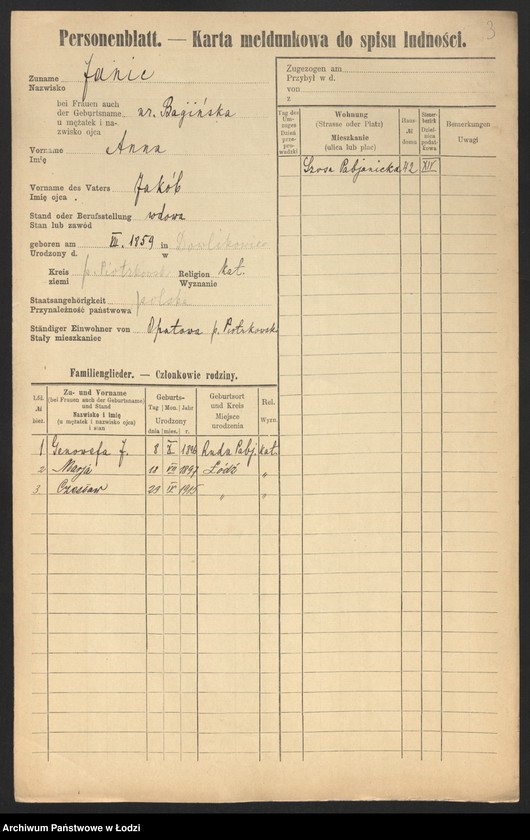 3
Personenblatt. — Karta meldunkowa do spisu ludności.
Zuname Janic
Nazwisko
bei Frauen auch
der Geburtsname ur. Bagińska
u mężatek i na-
zwisko ojca
Vorname Anna
Imię
Vorname des Vaters Jakób
Imię ojca
Stand oder Berufsstellung wdowa
Stan lub zawód
geboren am VII. 1859 in
Urodzony d. w
Kreis p. Piotrkowsk Religion kat.
ziemi Wyznanie
Staatsangehörigkeit polska
Przynależność państwowa
Ständiger Einwohner von Opatowa p. Piotrkowski
Stały mieszkaniec
Familienglieder. — Członkowie rodziny.
Lfd. № bież.
Zu- und Vorname
(bei Frauen auch der Geburtsname)
und Stand
Nazwisko i imię
(u mężatek i nazwisko ojca)
i stan
Geburts-
Tag Mon. Jahr
Urodzony
dnia mies. r.
Geburtsort
und Kreis
Miejsce
urodzenia
Rel.
Wyzn.
1 Genowefa J. 8 X 1896 Ruda Pabj. kat.
2 Marja 18 VII 1897 Łódź "
3 Czesław 23 IX 1915 " "
Zugezogen am
Przybył w d.
von
z
Tag des
Um-
zuges
Dzień
prze-
prowadzki
Wohnung
(Strasse oder Platz)
Mieszkanie
(ulica lub plac)
Haus-
№
domu
Steuer-
bezirk
Dziel-
nica
podat-
kowa
Bemerkungen
Uwagi
Szosa Pabjanicka 42 XIV
Archiwum Państwowe w Łodzi